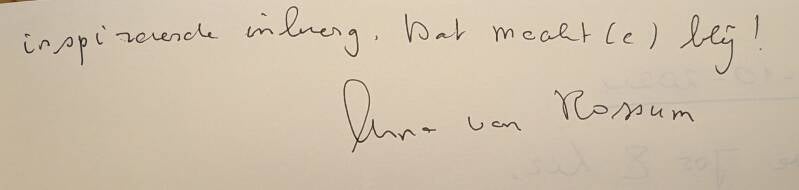 inspirerende inbreng. Dat maakt(e) blij!
van Rossum